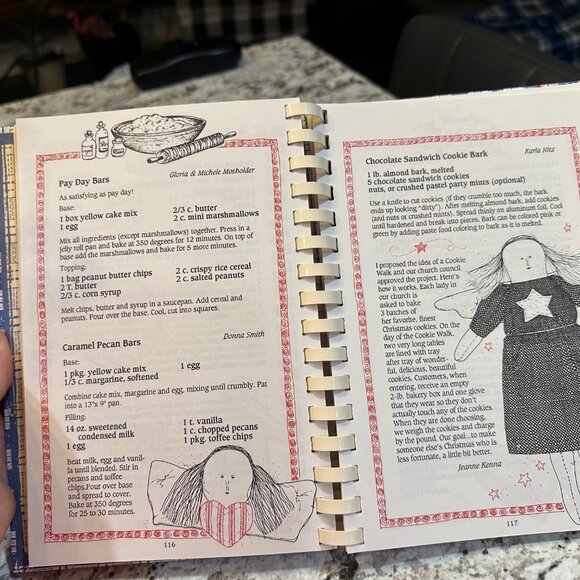 Pay Day Bars
Gloria & Michele Mosholder
As satisfying as pay day!
Base:
1 box yellow cake mix
1 egg
2/3 c. butter
2 c. mini marshmallows
Mix all ingredients (except marshmallows) together. Press in a
jelly roll pan and bake at 350 degrees for 12 minutes. On top of
base add the marshmallows and bake for 5 more minutes.
Topping:
1 bag peanut butter chips
2 T. butter
2/3 c. corn syrup
2 c. crispy rice cereal
2 c. salted peanuts
Melt chips, butter and syrup in a saucepan. Add cereal and
peanuts. Pour over the base. Cool, cut into squares.
Donna Smith
Caramel Pecan Bars
Base:
1 pkg. yellow cake mix
1/3 c. margarine, softened
1 egg
Combine cake mix, margarine and egg, mixing until crumbly. Pat
into a 13"x 9" pan.
Filling:
14 oz. sweetened
condensed milk
1 egg
1 t. vanilla
1 c. chopped pecans
1 pkg. toffee chips
Beat milk, egg and vanil-
la until blended. Stir in
pecans and toffee
chips.Pour over base
and spread to cover.
Bake at 350 degrees
for 25 to 30 minutes.
116
Chocolate Sandwich Cookie Bark
Karla Nitz
1 lb. almond bark, melted
5 chocolate sandwich cookies
nuts, or crushed pastel party mints (optional)
Use a knife to cut cookies (if they crumble too much, the bark
ends up looking "dirty"). After melting almond bark, add cookies
(and nuts or crushed mints). Spread thinly on aluminum foil. Cool
until hardened and break into pieces. Bark can be colored pink or
green by adding paste food coloring to bark as it is melted.
I proposed the idea of a Cookie
Walk and our church council
approved the project. Here's
how it works. Each lady in
our church is
asked to bake
3 batches of
her favorite, finest
Christmas cookies. On the
day of the Cookie Walk,
two very long tables
are lined with tray
after tray of wonder-
ful, delicious, beautiful
cookies. Customers, when
entering, receive an empty
2-lb. bakery box and one glove
that they wear so they don't
actually touch any of the cookies.
When they are done choosing,
we weigh the cookies and charge
by the pound. Our goal...to make
someone else's Christmas who is
less fortunate, a little bit better.
Jeanne Kenna
117